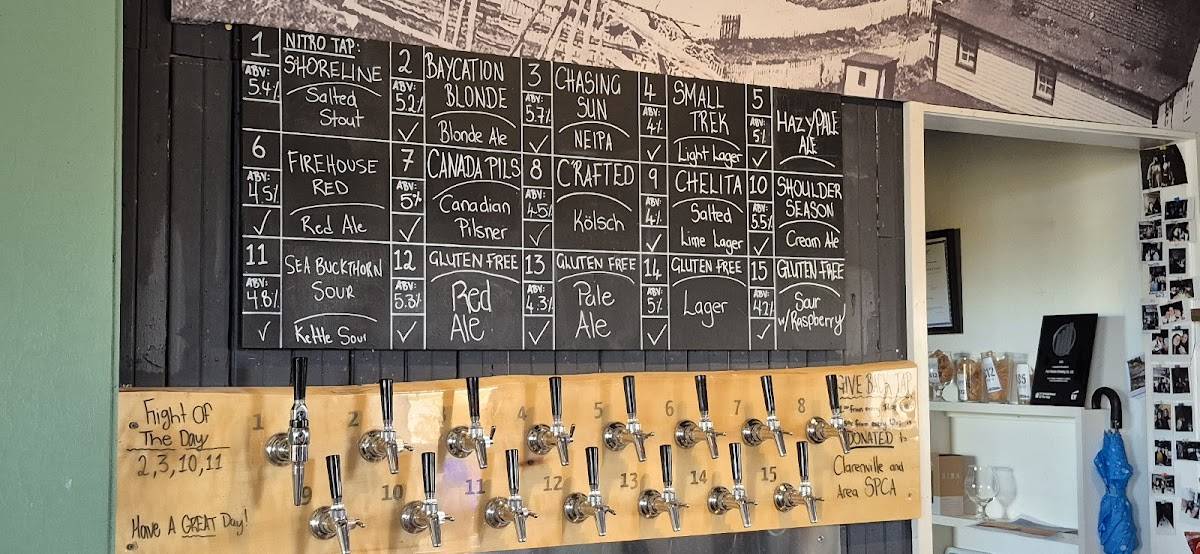 1
ABV:
5.4%
NITRO TAP:
SHORELINE
Salted
Stout
2
ABV:
5.2%
✓
BAYCATION
BLONDE
Blonde Ale
3
ABV:
5.7%
✓
CHASING
SUN
NEIPA
4
ABV:
4%
✓
SMALL
TREK
Light Lager
5
ABV:
5%
✓
HAZY PALE
ALE
6
ABV:
4.5%
✓
FIREHOUSE
RED
Red Ale
7
ABV:
5%
✓
CANADA PILS
Canadian
Pilsner
8
ABV:
4.5%
✓
C'RAFTED
Kölsch
9
ABV:
4%
✓
CHELITA
Salted
Lime Lager
10
ABV:
5.5%
✓
SHOULDER
SEASON
Cream Ale
11
ABV:
4.8%
✓
SEA BUCKTHORN
SOUR
Kettle Sour
12
ABV:
5.3%
✓
GLUTEN FREE
Red
Ale
13
ABV:
4.3%
✓
GLUTEN FREE
Pale
Ale
14
ABV:
5%
✓
GLUTEN FREE
Lager
15
ABV:
4.2%
✓
GLUTEN FREE
Sour
w/Raspberry
Flight Of
The Day
2,3,10,11
Have A GREAT Day!
1 2 3 4 5 6 7 8
9 10 11 12 13 14 15
GIVE BACK TAP
from every
from every
DONATED to
Clarenville and
Area SPCA